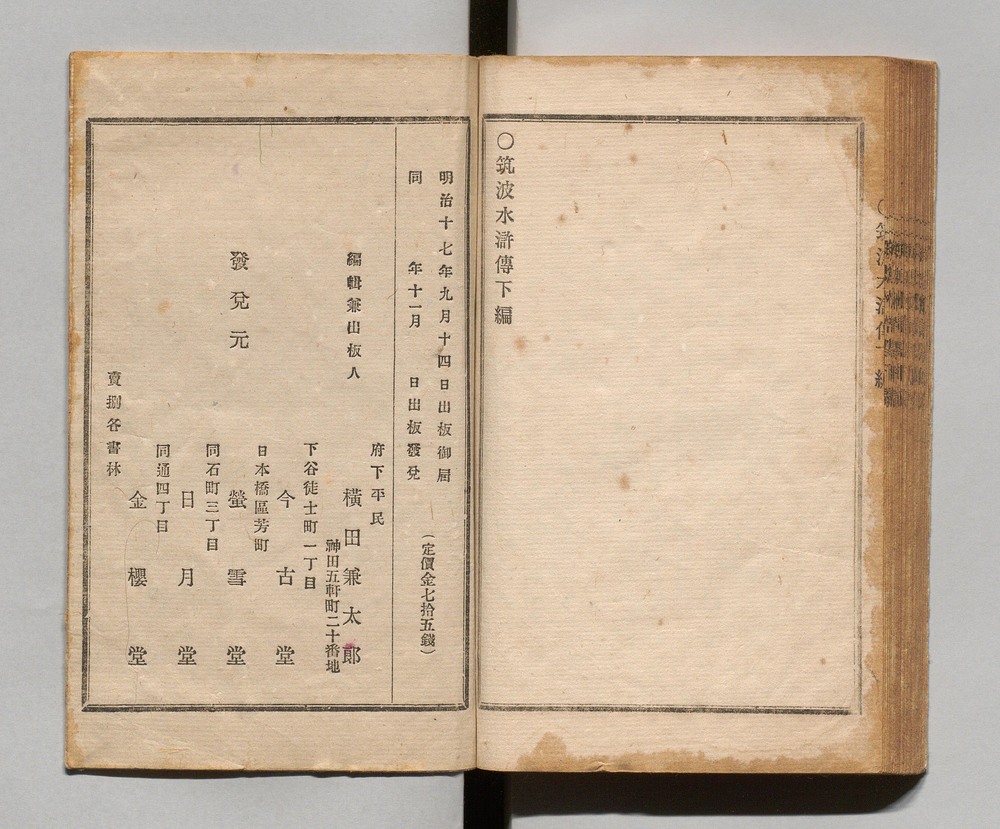 ○筑波水滸傳下編
明治十七年九月十四日出板御屆
同　年十一月　日出板發兌
(定價金七拾五錢)
府下平民
編輯兼出板人　橫田兼太郎
神田五軒町二十番地
下谷徒士町一丁目
今古堂
日本橋區芳町
發兌元　螢雪堂
同石町三丁目
日月堂
同通四丁目
金櫻堂
賣捌各書林